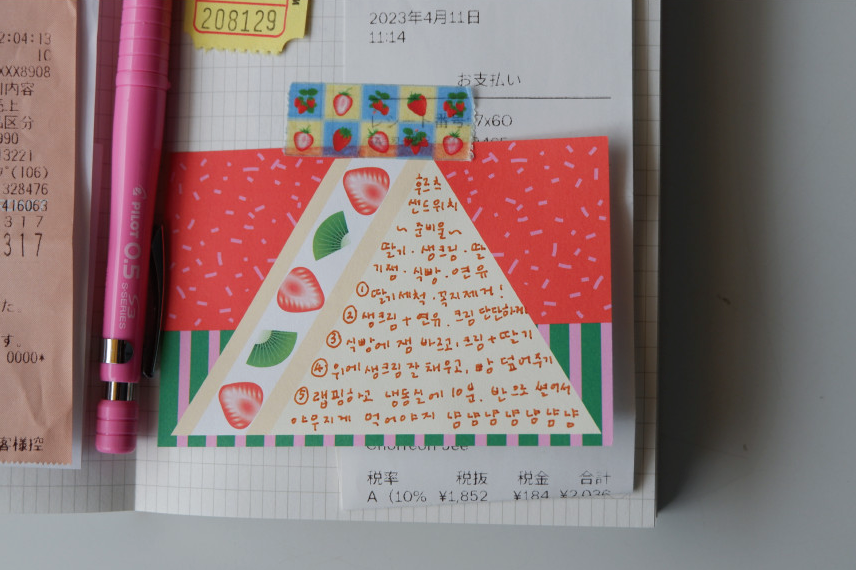 2:04:13
1C
XXX8908
内容
売上
区分
990
13221
(106)
328476
416063
317
317
た。
す。
0000*
客様控
PILOT 0.5 S3
S-SERIES
208129
2023年4月11日
11:14
お支払い
レシート番号 7x60
후르츠
샌드위치
~ 준비물 ~
딸기 · 생크림 · 딸
기잼 · 식빵 · 연유
① 딸기세척 · 꼭지제거!
② 생크림 + 연유. 크림 단단하게
③ 식빵에 잼 바르고, 크림 + 딸기
④ 위에 생크림 잘 채우고, 빵 덮어주기
⑤ 랩핑하고 냉동실에 10분. 반으로 썰어서
야무지게 먹어야지 냠냠냠냠냠냠냠냠
税率 税抜 税金 合計
A (10% ¥1,852 ¥184 ¥2,036